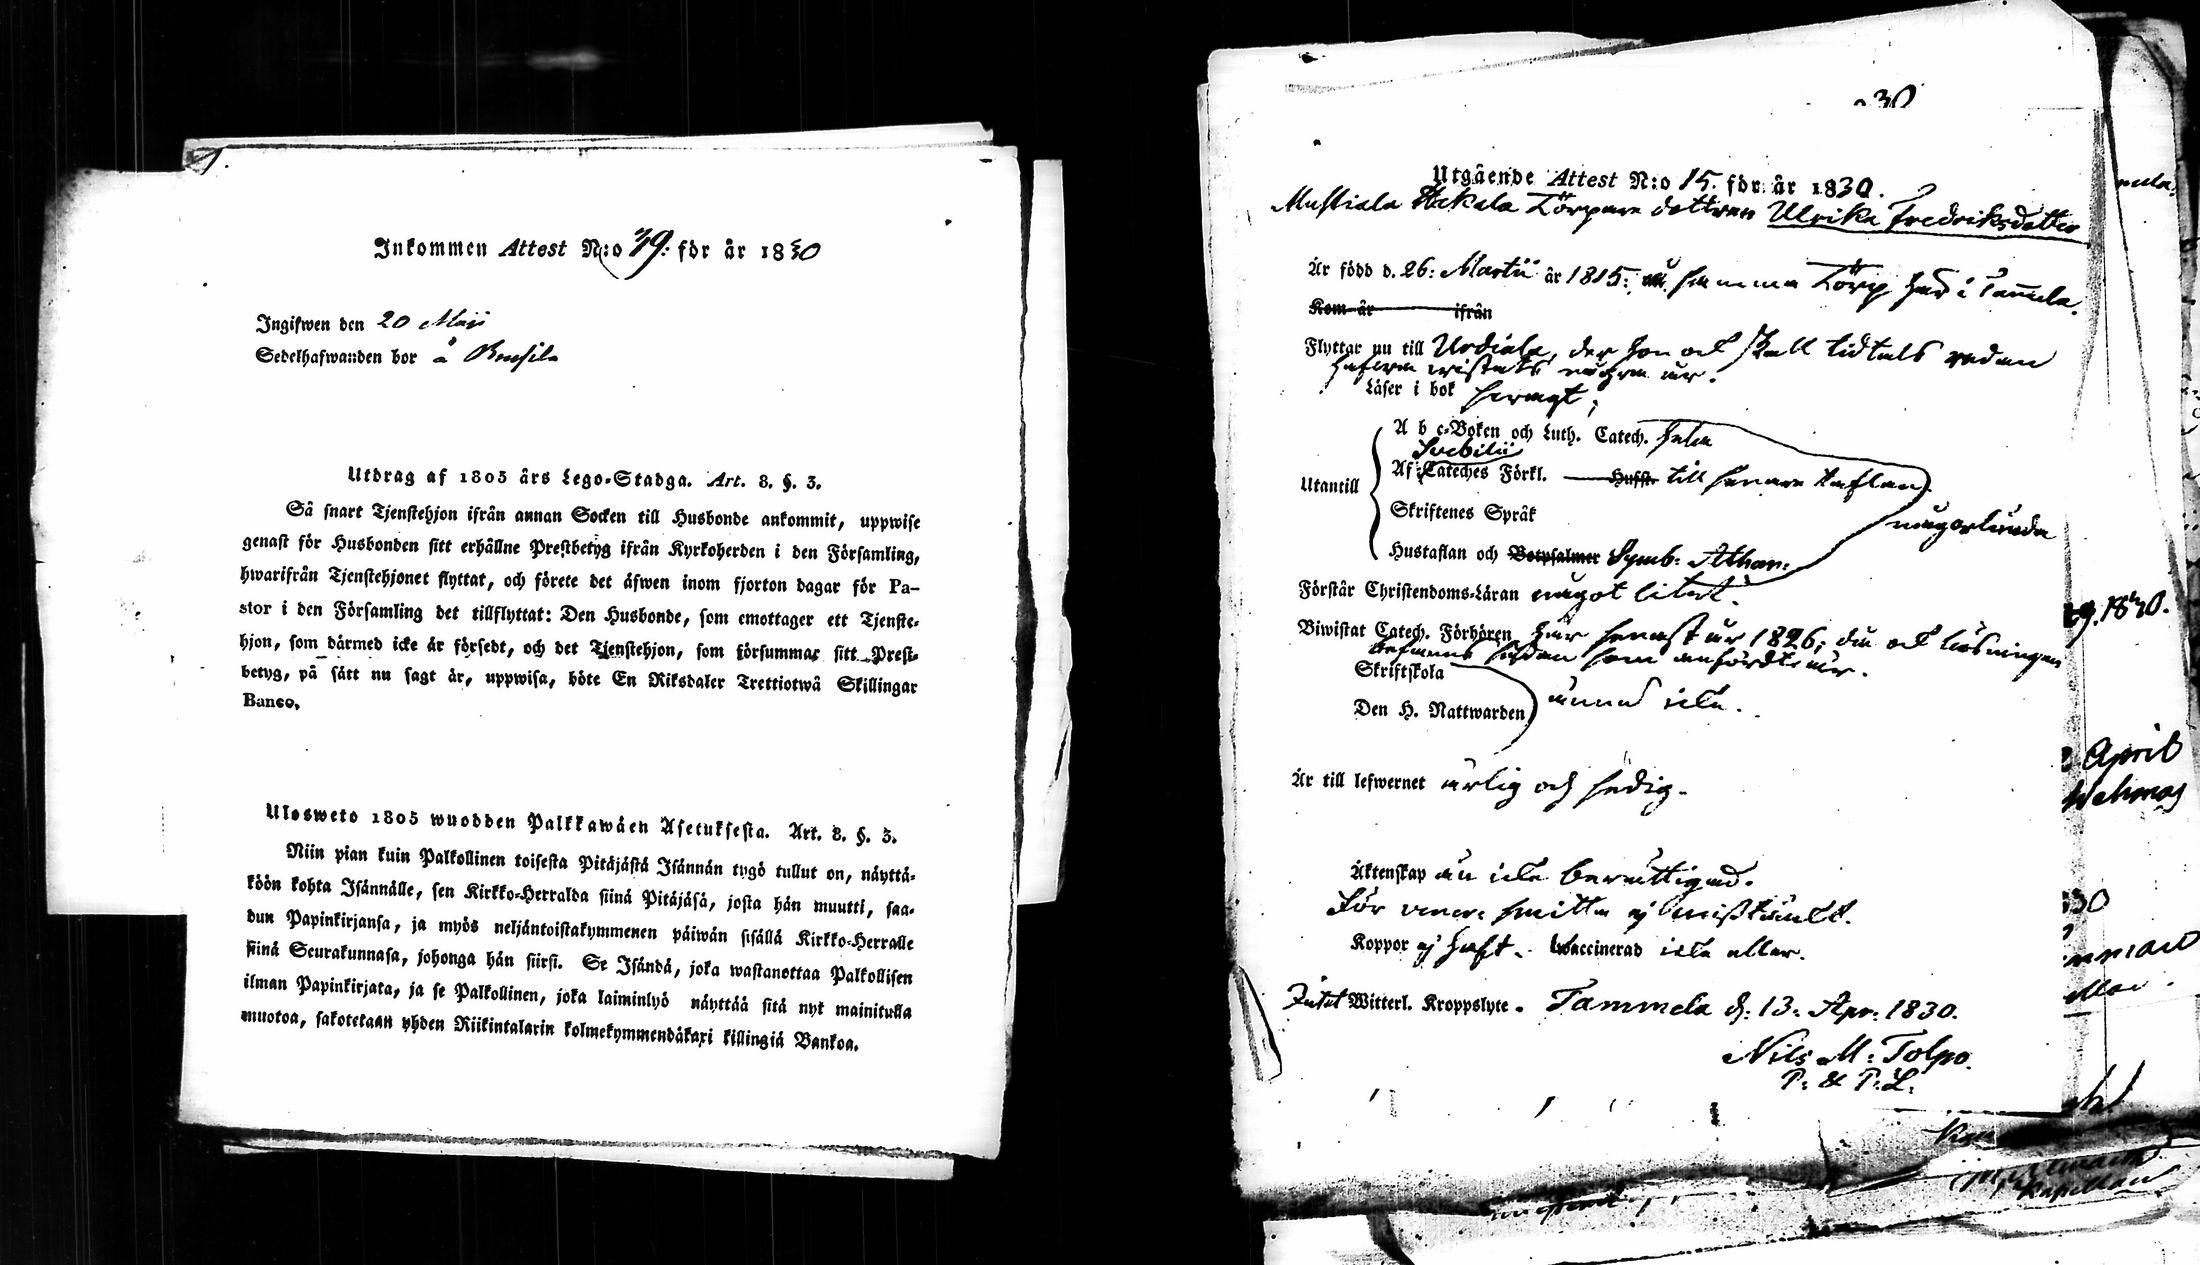 Inkommen Attest N:o 39: för år 1830
Ingifwen den 20 Maji
Sedelhafwanden bor å
Utdrag af 1805 års Lego-Stadga. Art. 8. §. 3.
Så snart Tjenstehjon ifrån annan Socken till Husbonde ankommit, uppwise
genast för Husbonden sitt erhållne Prestbetyg ifrån Kyrkoherden i den Församling,
hwarifrån Tjenstehjonet flyttat, och förete det äfwen inom fjorton dagar för Pa-
stor i den Församling det tillflyttat: Den Husbonde, som emottager ett Tjenste-
hjon, som därmed icke är försedt, och det Tjenstehjon, som försummar sitt Prest-
betyg, på sätt nu sagt är, uppwisa, böte En Riksdaler Trettiotwå Skillingar
Banco.
Ulosweto 1805 wuodden Palkkawäen Asetuksesta. Art. 8. §. 3.
Niin pian kuin Palkollinen toisesta Pitäjästä Isännän tygö tullut on, näyttä-
köön kohta Isännälle, sen Kirkko-Herralda siinä Pitäjäsä, josta hän muutti, saa-
dun Papinkirjansa, ja myös neljäntoistakymmenen päiwän sisällä Kirkko-Herralle
siinä Seurakunnasa, johonga hän siirsi. Se Isändä, joka wastanottaa Palkollisen
ilman Papinkirjata, ja se Palkollinen, joka laiminlyö näyttää sitä nyt mainitulla
muotoa, sakotetaan yhden Riikintalarin kolmekymmendäkaxi killingiä Bankoa.
30
Utgående Attest N:o 15. för år 1830.
Mustiala Torpare dottren Ulrika Fredriksdotter
Är född d. 26: Martii år 1815: å samma Torp här i Tammela.
Kom år ifrån
Flyttar nu till Urdiala, der hon ock skall tidtals redan
hafwa wistats några år.
Läser i bok swagt;
A b c-Boken och Luth. Catech. hela
Svebilii
Utantill
Af Cateches Förkl. Husst. till senare taflan
Skriftenes Språk
någorlunda
Hustaflan och Botpsalmer Symb. Athan.
Förstår Christendoms-Läran något litet.
Biwistat Catech. Förhören här senast år 1826; då ock läsningen
befanns sådan som anfördt är.
Skriftskola
Den H. Nattwarden ännu icke.
Är till lefwernet ärlig och sedig.
Äktenskap än icke berättigad.
För vener. smitta ej misstänkt.
Koppor ej haft. Waccinerad icke eller.
Intet Witterl. Kroppslyte. Tammela d. 13. Apr. 1830.
Nils M. Tolpo.
P. & P. L.
1830.
April